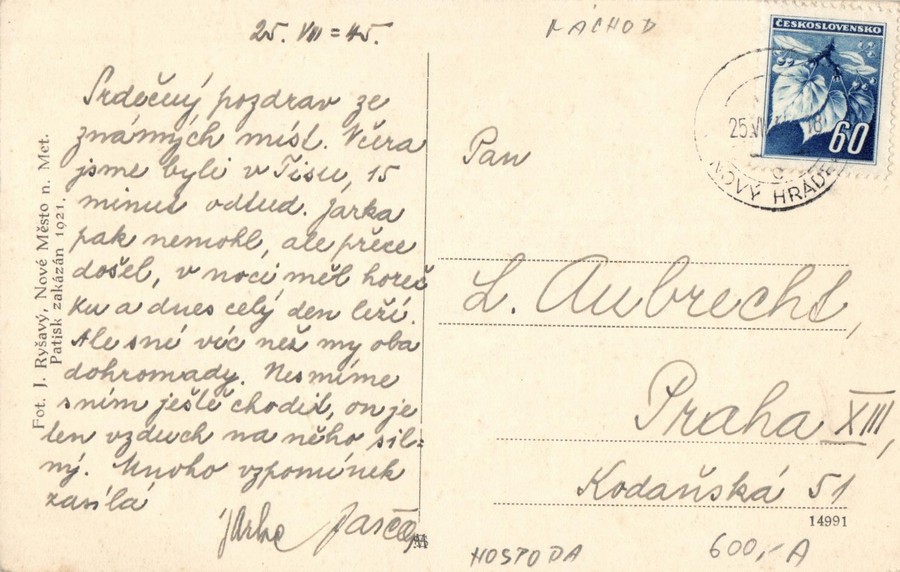 25. VII = 45.
NÁCHOD
ČESKOSLOVENSKO
60
25.VII
18
NOVÝ HRÁDE
Srdečný pozdrav ze
známých míst. Včera
jsme byli v Tisu, 15
minut odtud. Jarka
pak nemohl, ale přece
došel, v noci měl horeč
ku a dnes celý den leží.
Ale sné víc než my oba
dohromady. Nesmíme
s ním ještě chodit, on je
ten vzduch na něho sil-
ný. Mnoho vzpomínek
zasílá
Jarka
Fot. J. Ryšavý, Nové Město n. Met.
Patisk zakázán 1921.
Pan
L. Aubrecht,
Praha XIII,
Kodaňská 51
14991
HOSPODA
600,- A